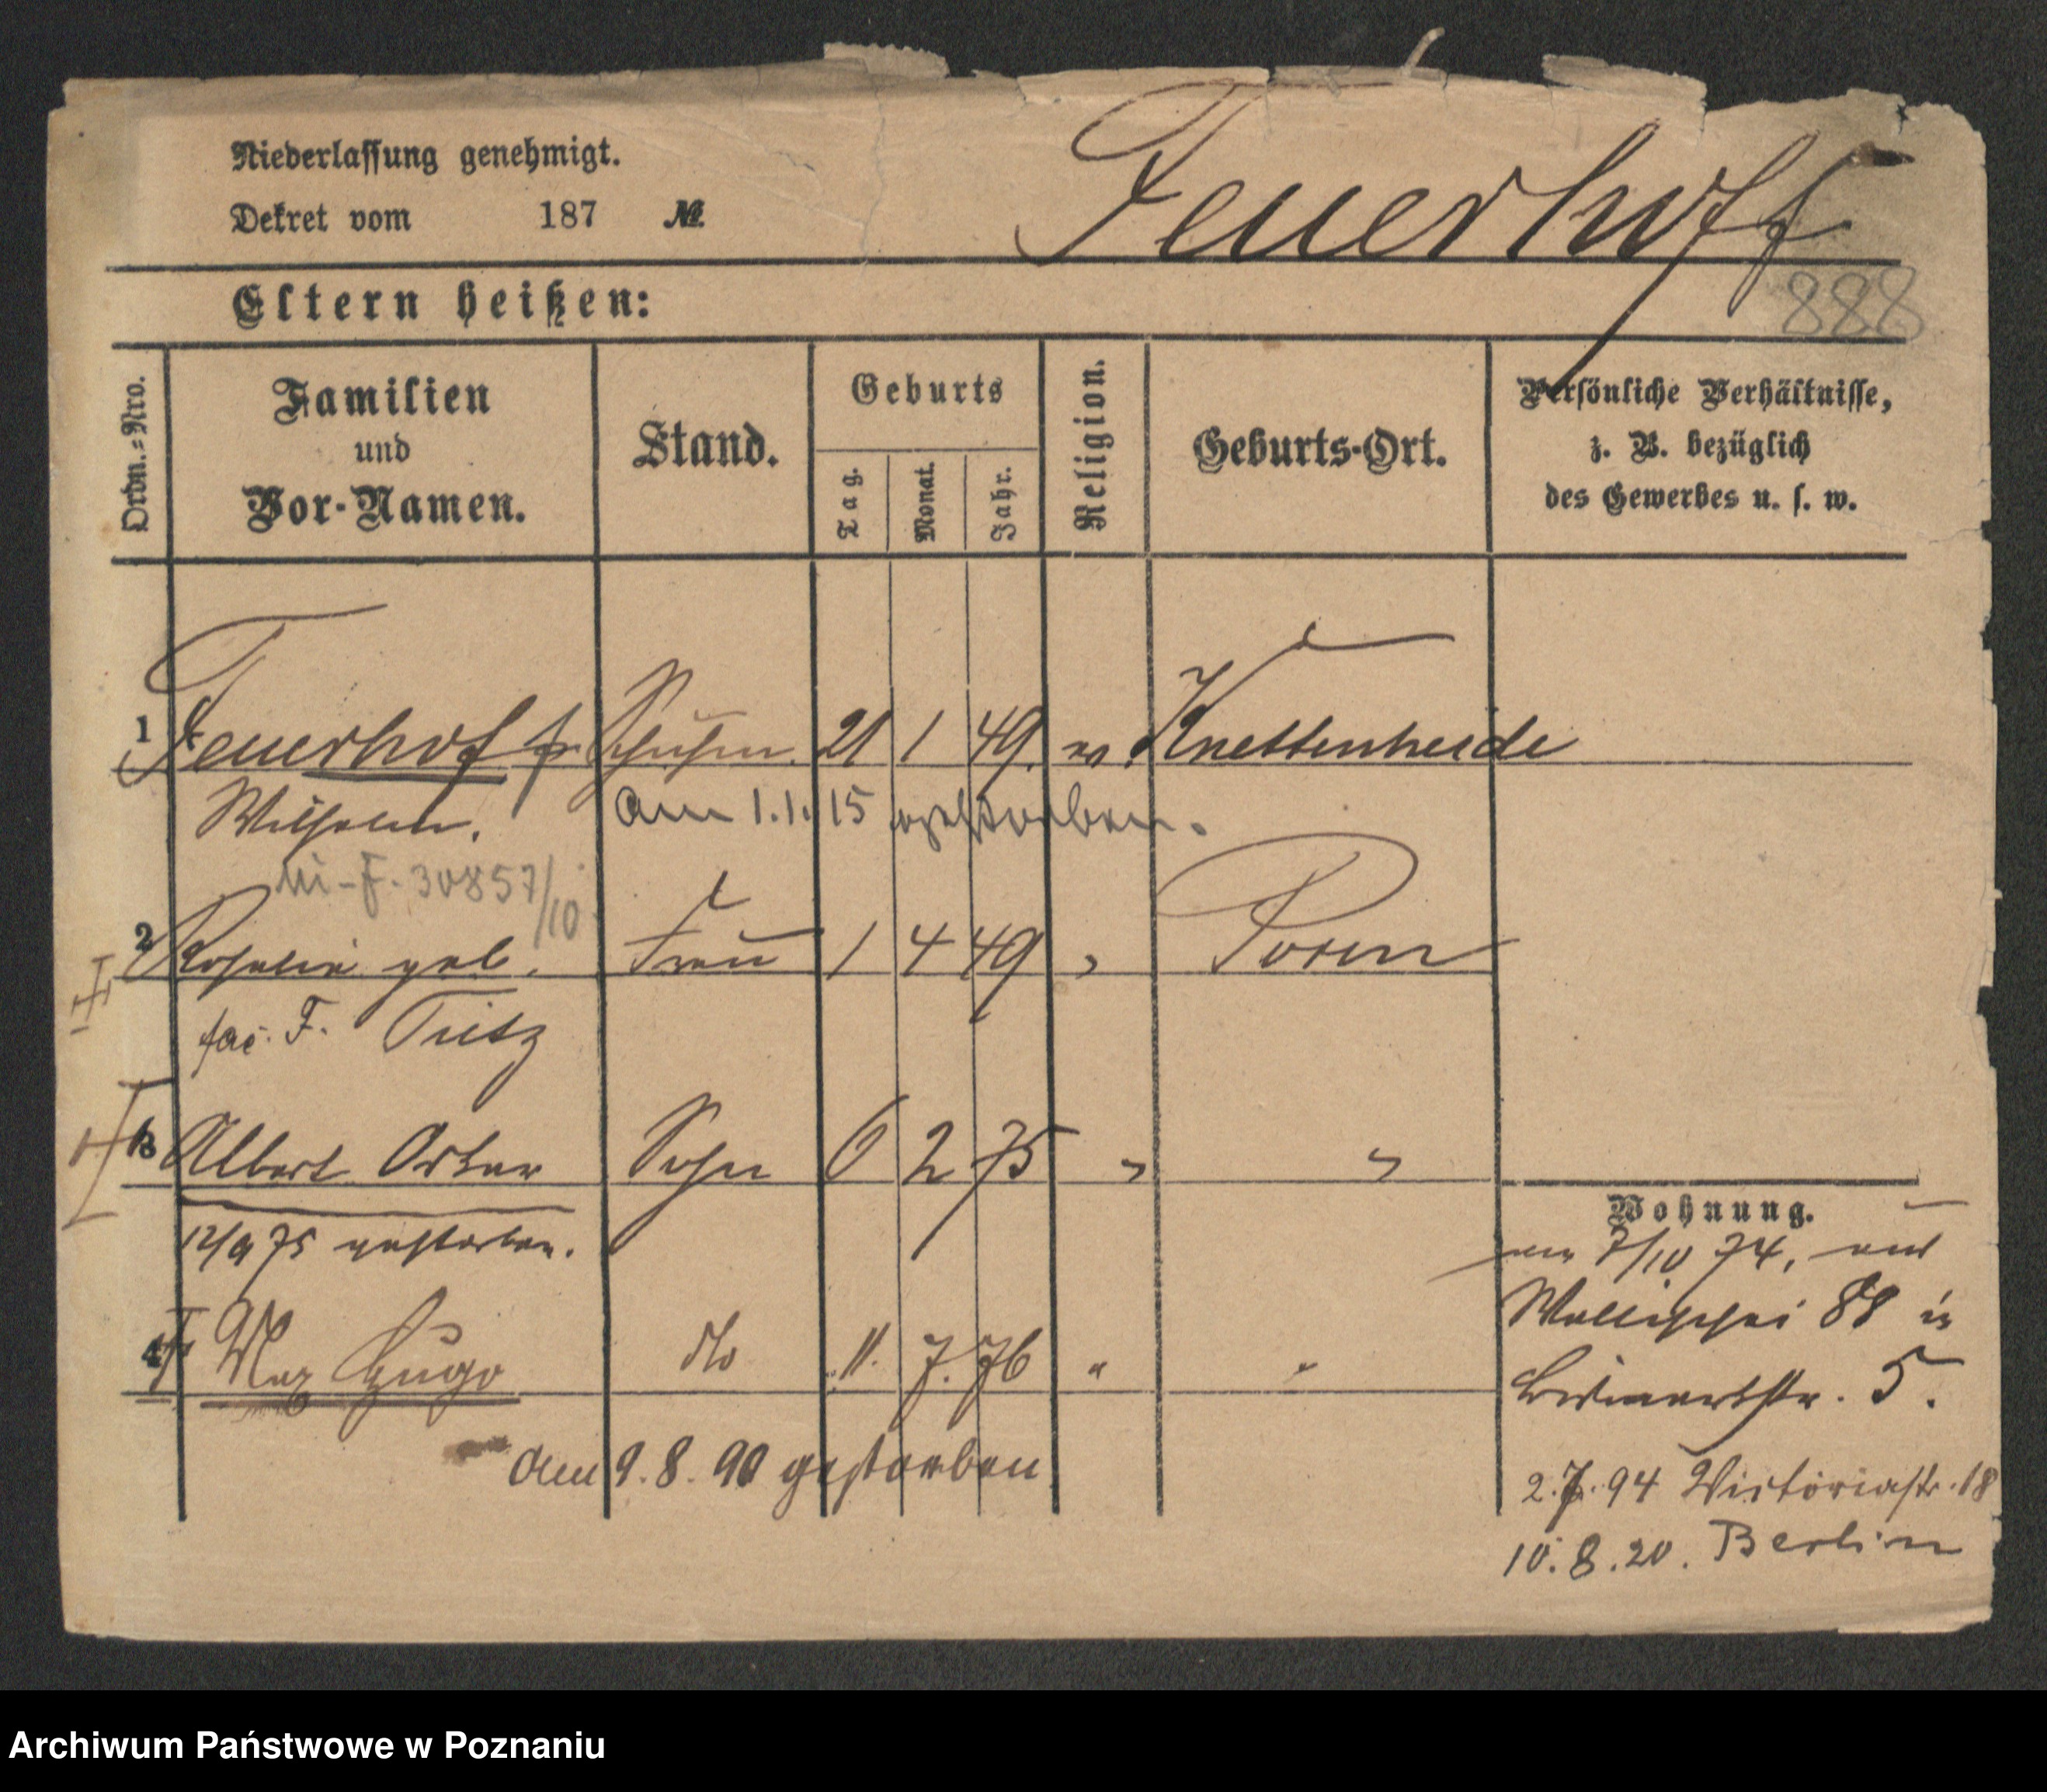 Niederlassung genehmigt.
Dekret vom 187 №
Feuerhoff
888
Eltern heißen:
Ordn.-Nro.
Familien
und
Vor-Namen.
Stand.
Geburts
Tag.
Monat.
Jahr.
Religion.
Geburts-Ort.
Persönliche Verhältnisse,
z. B. bezüglich
des Gewerbes u. s. w.
1 Feuerhoff 21 1 49. Knettenheide
Wilhelm. am 1.1.15 gestorben.
30857/10
2 Rosalie geb. Frau 1 4 49 " Posen
Tietz
3 Albert Oskar Sohn 6 2 75 " "
12/9 75 gestorben.
4 Max Hugo dto 11. 7. 76 " "
am 9.8.90 gestorben
Wohnung.
7/10 74, auf
Wallischei 88 in
Bismarckstr. 5.
2.7.94 Victoriastr. 18
10.8.20. Berlin
Archiwum Państwowe w Poznaniu